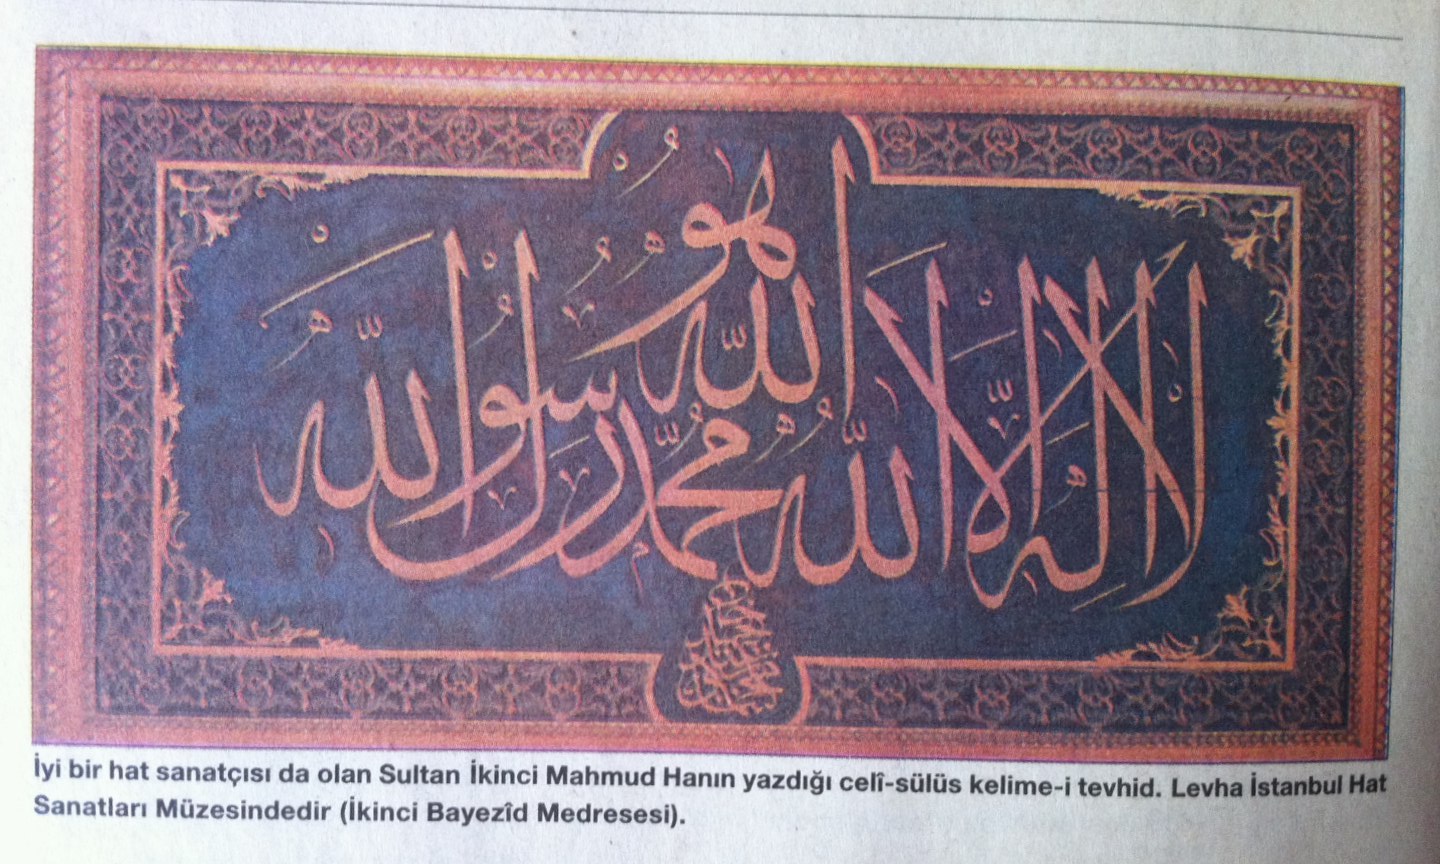 هو الله
لا اله الا الله محمد رسول الله
İyi bir hat sanatçısı da olan Sultan İkinci Mahmud Hanın yazdığı celî-sülüs kelime-i tevhid. Levha İstanbul Hat
Sanatları Müzesindedir (İkinci Bayezîd Medresesi).